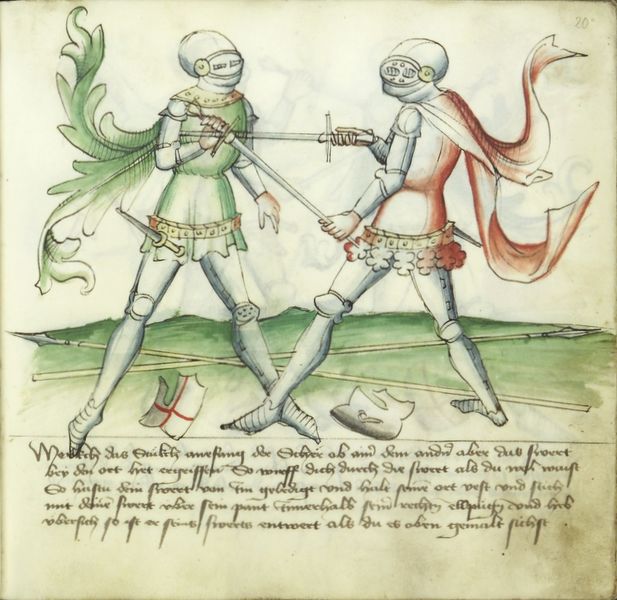 20
Merckch das Stukch anefang der Schere ob ainer dem andern aber das swert
bey dem ort het ergriffen So wirff dich durch die swert als du wol waist
So hastu dein swert von im geledigt vnd halt seinē ort vest vnd stich
mit deinē swert vber sein hant innerhalb seins rechten ellpogen vnd heb
vbersich so ist er seins swerts entwert als du es oben gemalt sichst